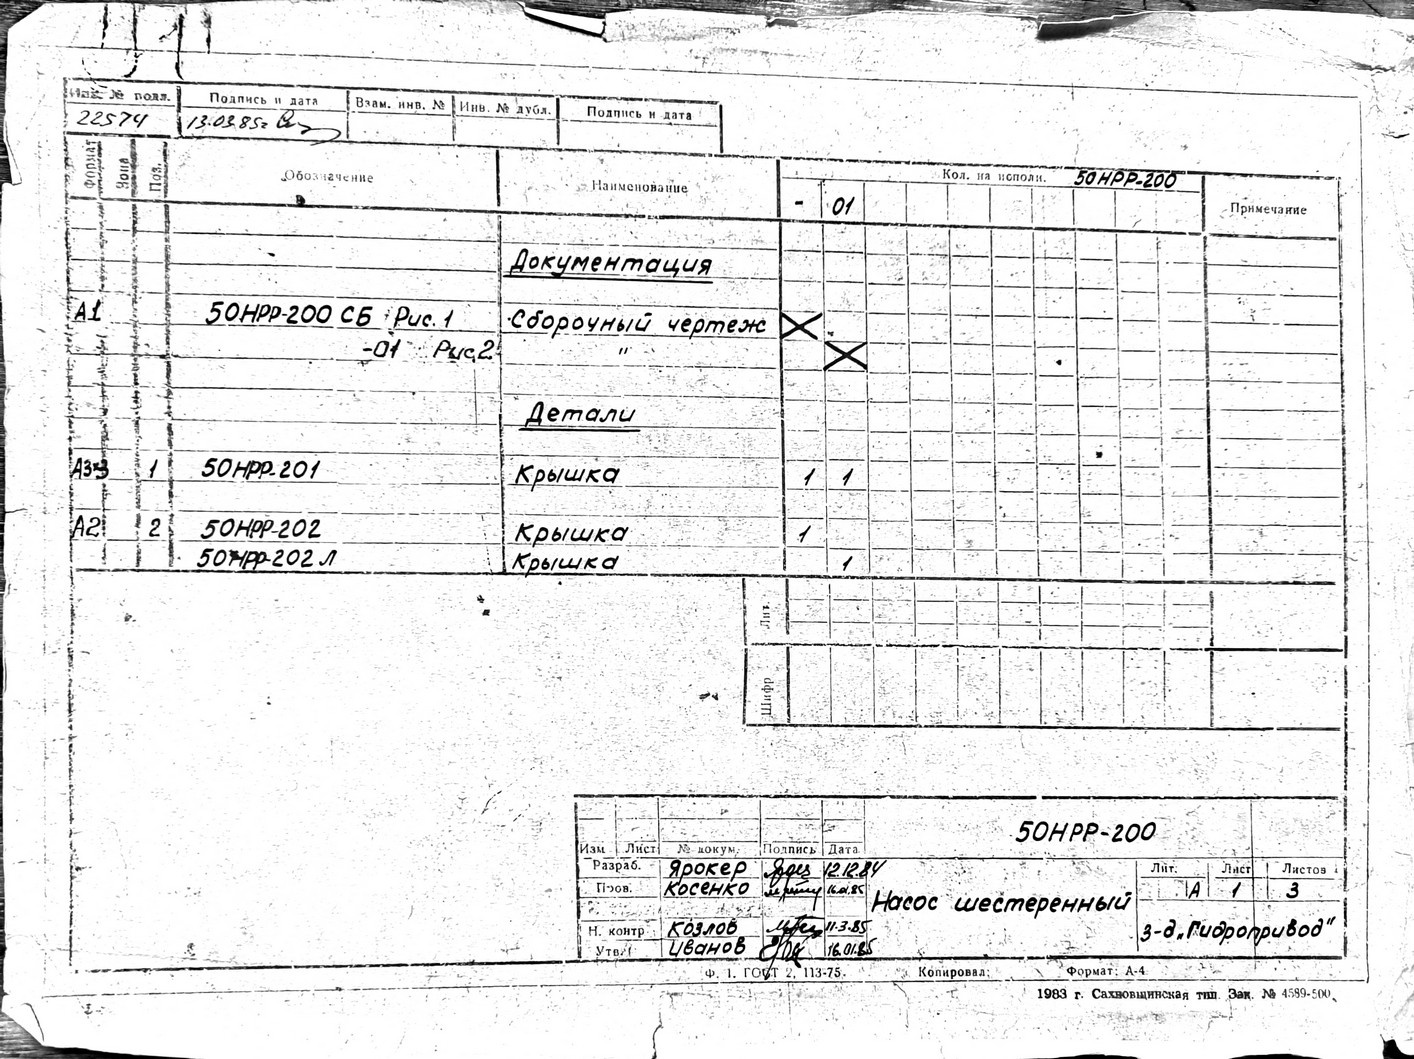 Инв. № подл. Подпись и дата Взам. инв. № Инв. № дубл. Подпись и дата
22574 13.03.85г
Формат Зона Поз. Обозначение Наименование Кол. на исполн. 50НРР-200 Примечание
- 01
Документация
А1 50НРР-200 СБ Рис. 1 Сборочный чертеж X
-01 Рис.2 " X
Детали
1 50НРР-201 Крышка 1 1
А2 2 50НРР-202 Крышка 1
50НРР-202 Л Крышка 1
Лит.
Шифр
50НРР-200
Изм Лист № докум. Подпись Дата
Разраб. Ярокер 12.12.84
Пров. Косенко 16.01.85
Насос шестеренный
Лит. Лист Листов
А 1 3
Н. контр Козлов 11.3.85
Утв. Иванов 16.01.85
з-д „Гидропривод"
Ф. 1. ГОСТ 2, 113-75. Копировал: Формат: А-4
1983 г. Сахновщинская тип. Зак. № 4589-500